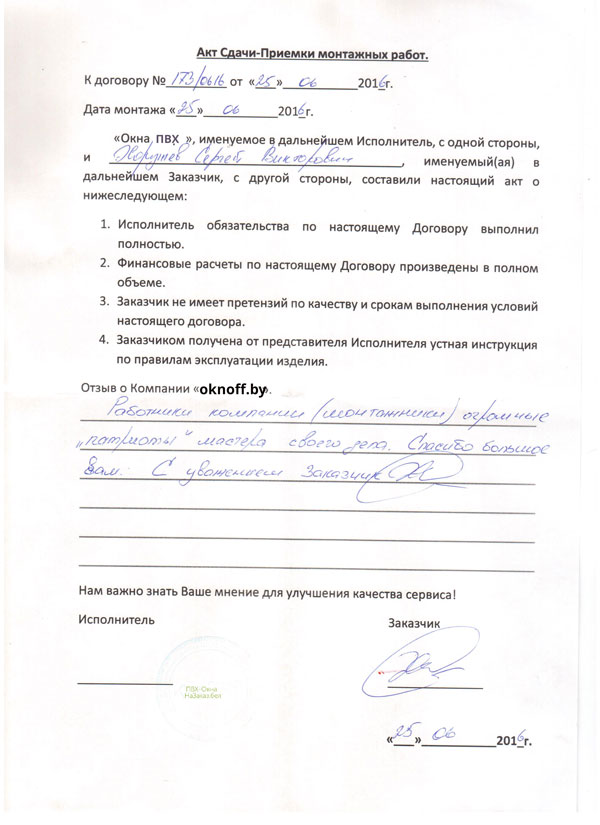 Акт Сдачи-Приемки монтажных работ.
К договору № 173/0616 от «25» 06 2016г.
Дата монтажа «25» 06 2016г.
«Окна ПВХ », именуемое в дальнейшем Исполнитель, с одной стороны,
и Сергей Викторович, именуемый(ая) в
дальнейшем Заказчик, с другой стороны, составили настоящий акт о
нижеследующем:
1. Исполнитель обязательства по настоящему Договору выполнил
полностью.
2. Финансовые расчеты по настоящему Договору произведены в полном
объеме.
3. Заказчик не имеет претензий по качеству и срокам выполнения условий
настоящего договора.
4. Заказчиком получена от представителя Исполнителя устная инструкция
по правилам эксплуатации изделия.
Отзыв о Компании «oknoff.by».
Работники компании (монтажники) огромные
„патриоты“ мастера своего дела. Спасибо большое
Вам. С уважением Заказчик
Нам важно знать Ваше мнение для улучшения качества сервиса!
Исполнитель Заказчик
ПВХ-Окна
НаЗаказ.бел
«25» 06 2016г.